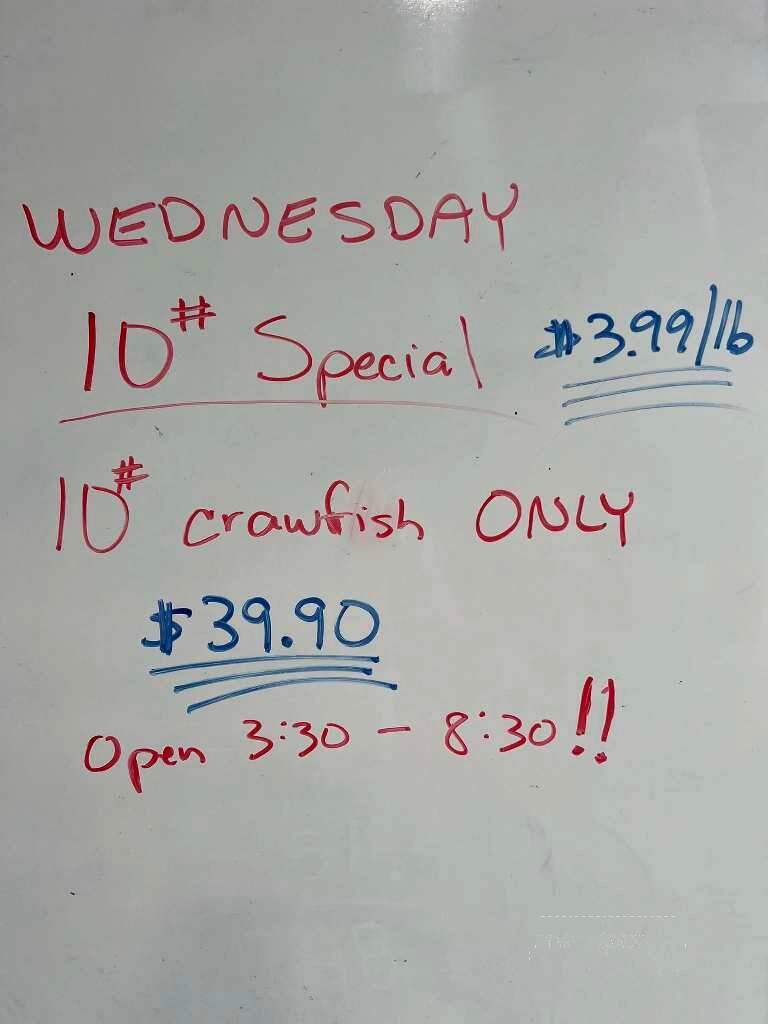 WEDNESDAY
10# Special $3.99/lb
10# crawfish ONLY
$39.90
Open 3:30 - 8:30!!